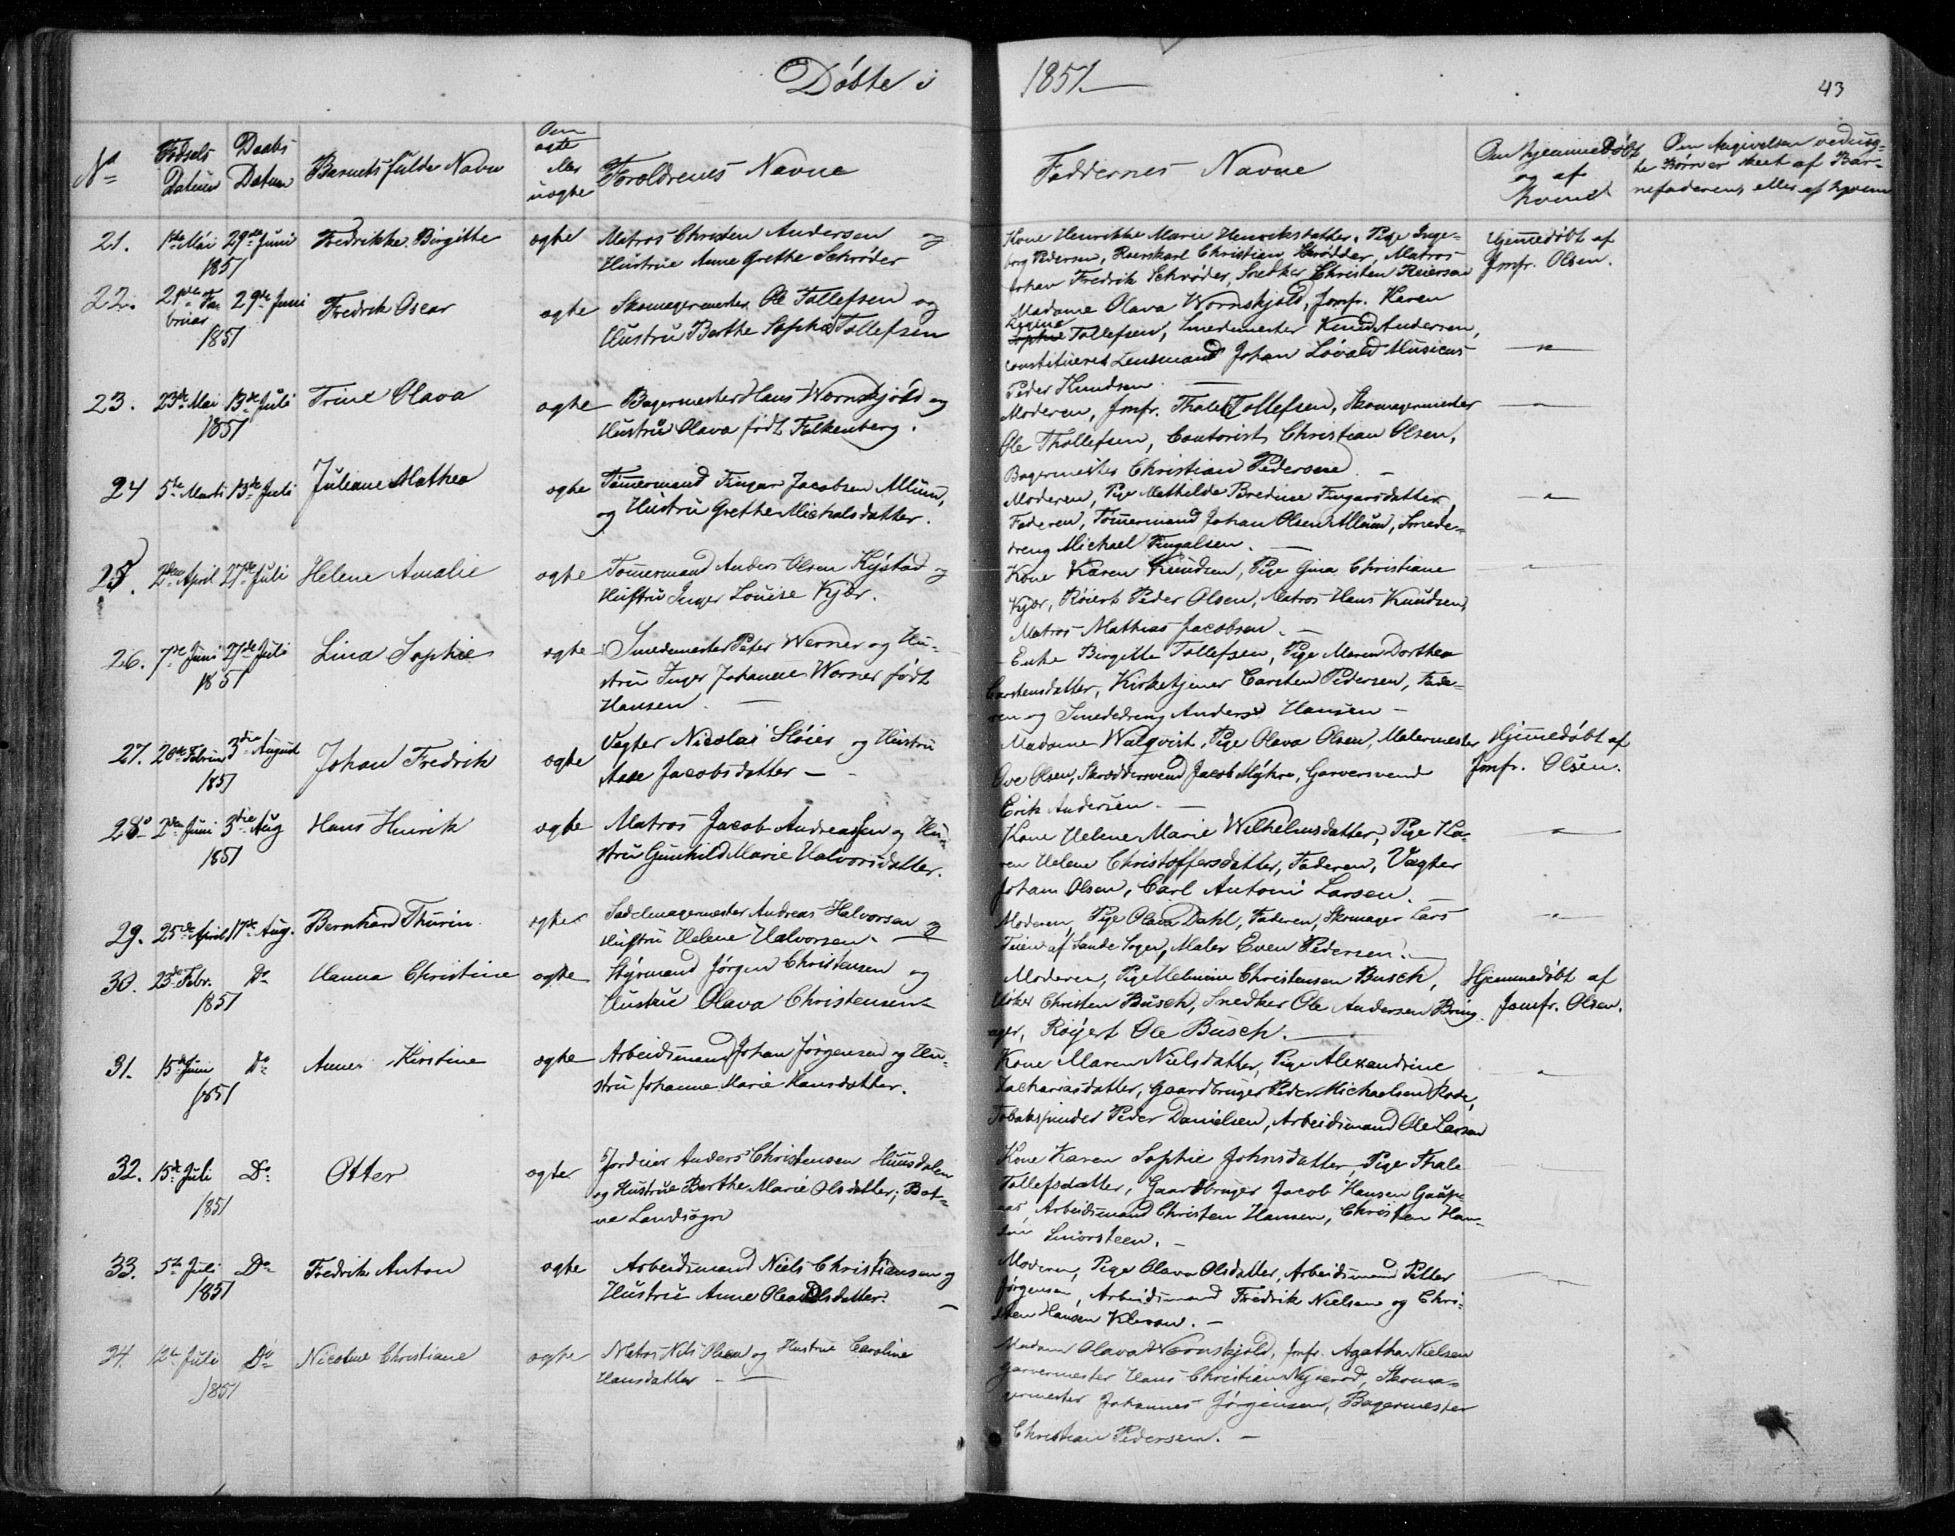 Döbte i 1851.
43
No
Fødsels Datum
Daabs Datum
Barnets fulde Navn
Om ægte eller uægte
Forældrenes Navne
Faddernes Navne
Om hjemmedöbt og af hvem
Om Angivelsen af uægte Börn er skeet af Barnefaderen, eller af hvem
21. 1ste Mai 1851 29de Juni Fredrikke Birgitte ægte
Matros Christen Andersen og
Hustrue Anne Grethe Schrøder
Kone Henrikke Marie Henriksdatter, Pige Inge-
borg Pedersen, Christian Schrødder, Matros
Johan Fredrik Schrøder, Snedker Christen Reiersen
Hjemmedöbt af
Jmfr. Olsen.
22. 21de Februar 1851 29de Juni Fredrik Oscar ægte
Skomagermester Ole Tollefsen og
Hustru Berthe Sophie Tollefsen
Madame Olava Wornskjold, Jomfr. Karen
Regine
Sophie Tollefsen, Smedemester Knud Andersen,
constitueret Lensmand Johan Lövald Musicus
Peder Knudsen.
"
23. 23de Mai 1851 13de Juli Trine Olava ægte
Bagermester Hans Wornskjold og
Hustru Olava født Falkenberg.
Moderen, Jmfr. Thale Tollefsen, Skomagermester
Ole Thollefsen, Contorist Christian Olsen,
Bagermester Christian Pedersen.
"
24 5te Marti 13de Juli Juliane Mathea ægte
Tømermand Fingar Jacobsen Allum,
og Hustru Grethe Michalsdatter.
Moderen, Pige Mathilde Bredine Fingarsdatter,
Faderen, Tømermand Johan Olsen Allum, Smede-
dreng Michael Fingalsen.
"
25. 2den April 27de Juli Helene Amalie ægte
Tømermand Anders Olsen Kjøstad og
Hustru Inger Louise Kjær.
Kone Karen Knudsen, Pige Gina Christiane
Kjær, Røiert Peder Olsen, Matros Hans Knudsen,
Matros Mathias Jacobsen.
"
26. 7de Juni 1851 27de Juli Lina Sophie ægte
Smedemester Peter Werner og Hu-
stru Inger Johanne Worner født
Hansen.
Enke Birgitte Tollefsen, Pige Maren Dorthea
Carstensdatter, Kirketjener Carsten Pedersen, Fade-
ren og Smededreng Anders Hansen
27. 20de Februar 1851 3die August Johan Fredrik ægte
Vægter Nicolai Sløier og Hustru
Aase Jacobsdatter
Madame Walqvist, Pige Olava Olsen, Malermester
Ove Olsen, Skræddersvend Jacob Myhre, Garversvend
Erik Andersen.
Hjemmedöbt af
Jomfr. Olsen.
28. 2den Juni 1851 3die Aug Hans Henrik ægte
Matros Jacob Andreassen og Hu-
stru Gunhild Marie Halvorsdatter.
Kone Helene Marie Wilhelmsdatter, Pige Ka-
ren Helene Christoffersdatter, Faderen, Vægter
Johan Olsen, Carl Antoni Larsen.
"
29. 25de April 17de Aug. Bernhard Thurin ægte
Sadelmagermester Andreas Halvorsen og
Hustru Helene Halvorsen.
Moderen, Pige Olava Dahl, Faderen, Skomager Lars
Teien af Sande Sogn, Maler Even Pedersen.
"
30. 23de Febr. 1851 Do Hanna Christine ægte
Styrmand Jørgen Christensen og
Hustru Olava Christensen
Moderen, Pige Helmine Christensen Busch,
Høker Christen Busch, Snedker Ole Andersen Bring-
ager, Røyert Ole Busch.
Hjemmedöbt af
Jomfr. Olsen.
31. 15de Juni 1851 Do Anne Kirstine ægte
Arbeidsmand Johan Jørgensen og Hu-
stru Johanne Marie Hansdatter.
Kone Maren Nielsdatter, Pige Alexandrine
Zachariasdatter, Gaardbruger Peder Michaelsen Rode,
Tobakspinder Peder Danielsen, Arbeidsmand Ole Larsen
"
32. 15de Juli 1851 Do Otter ægte
Jordeier Anders Christensen Huusdalen
og Hustrue Berthe Marie Olsdatter, Bot-
ne Landsogn
Kone Karen Sophie Johnsdatter, Pige Thale
Tollefsdatter, Gaardbruger Jacob Hansen Gaap-
aas Arbeidsmand Christen Hansen, Christen Han-
sen Smørsteen.
33. 5te Juli 1851 Do Fredrik Anton ægte
Arbeidsmand Niels Christiansen og
Hustru Anne Olea Olsdatter.
Moderen, Pige Olava Olsdatter, Arbeidsmand Petter
Jørgensen, Arbeidsmand Fredrik Nielsen og Chri-
sten Hansen Klevan.
34. 12te Juli 1851 Do Nicoline Christiane ægte
Matros Nils Olsen og Hustrue Caroline
Hansdatter
Madam Olava Wornskjold, Jmfr. Agathe Nielsen
Garvermester Hans Christian Nyserød, Skoma-
germester Johannes Jørgensen, Bagermester
Christian Pedersen.